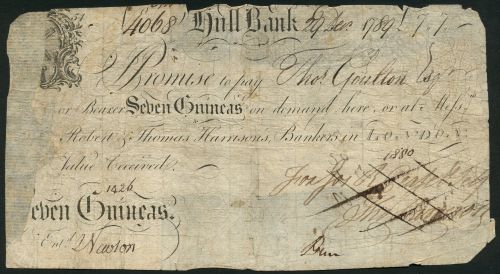 4068 Hull Bank 29 Dec. 1789 £7.7
I Promise to pay Thos. Goulton Esqr.
or Bearer Seven Guineas on demand here, or at Messrs.
Robert & Thomas Harrisons, Bankers in LONDON
Value Received.
1880
1426
For
Seven Guineas.
Entd. J Newton